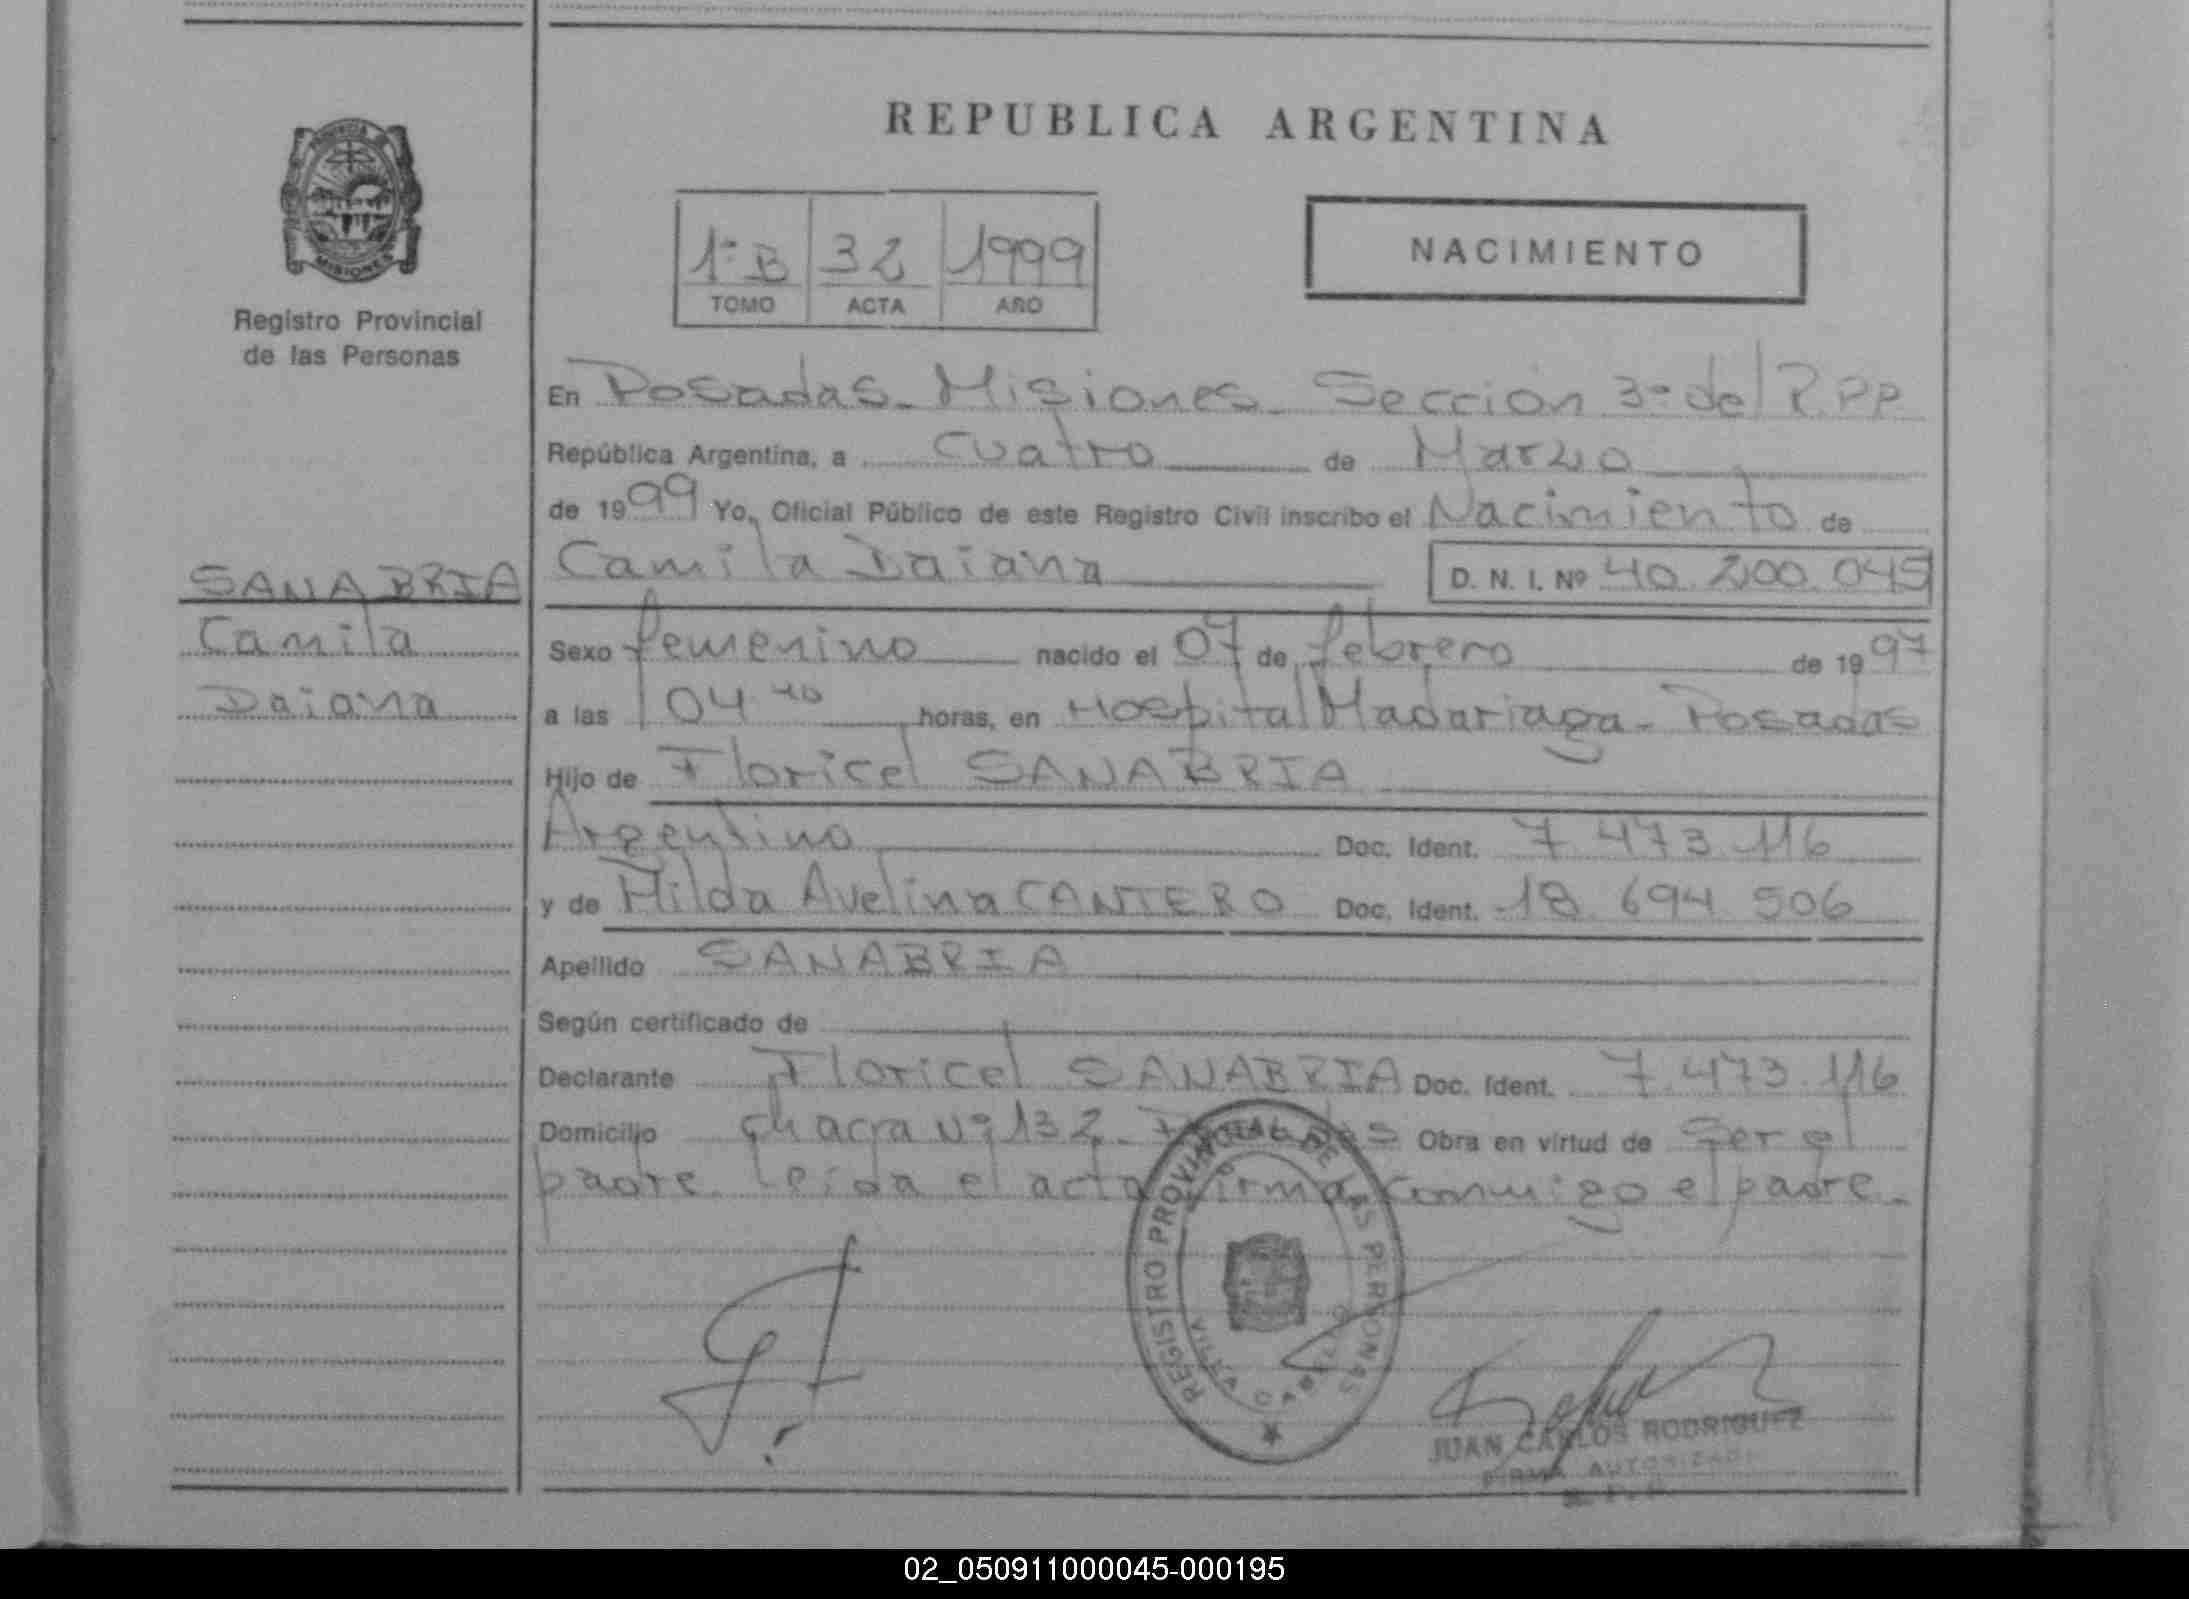 REPUBLICA ARGENTINA
PROVINCIA DE
MISIONES
Registro Provincial
de las Personas
1º B 32 1999
TOMO ACTA AÑO
NACIMIENTO
En Posadas - Misiones - Sección 3º del R.P.P
República Argentina, a cuatro de Marzo
de 1999 Yo, Oficial Público de este Registro Civil inscribo el Nacimiento de
Camila Daiana D. N. I. Nº 40.200.045
SANABRIA
Camila
Daiana
Sexo femenino nacido el 07 de febrero de 1997
a las 04 40 horas, en Hospital Madariaga - Posadas
Hijo de Floricel SANABRIA
Argentino Doc. Ident. 7.473.116
y de Hilda Avelina CANTERO Doc. Ident. 18.694.506
Apellido SANABRIA
Según certificado de
Declarante Floricel SANABRIA Doc. Ident. 7.473.116
Domicilio chacra Nº 132 - Posadas Obra en virtud de Ser el
padre. Leída el acta firma conmigo el padre.
REGISTRO PROVINCIAL DE LAS PERSONAS
VILLA CABELLO
JUAN CARLOS RODRIGUEZ
FIRMA AUTORIZADA
02_050911000045-000195